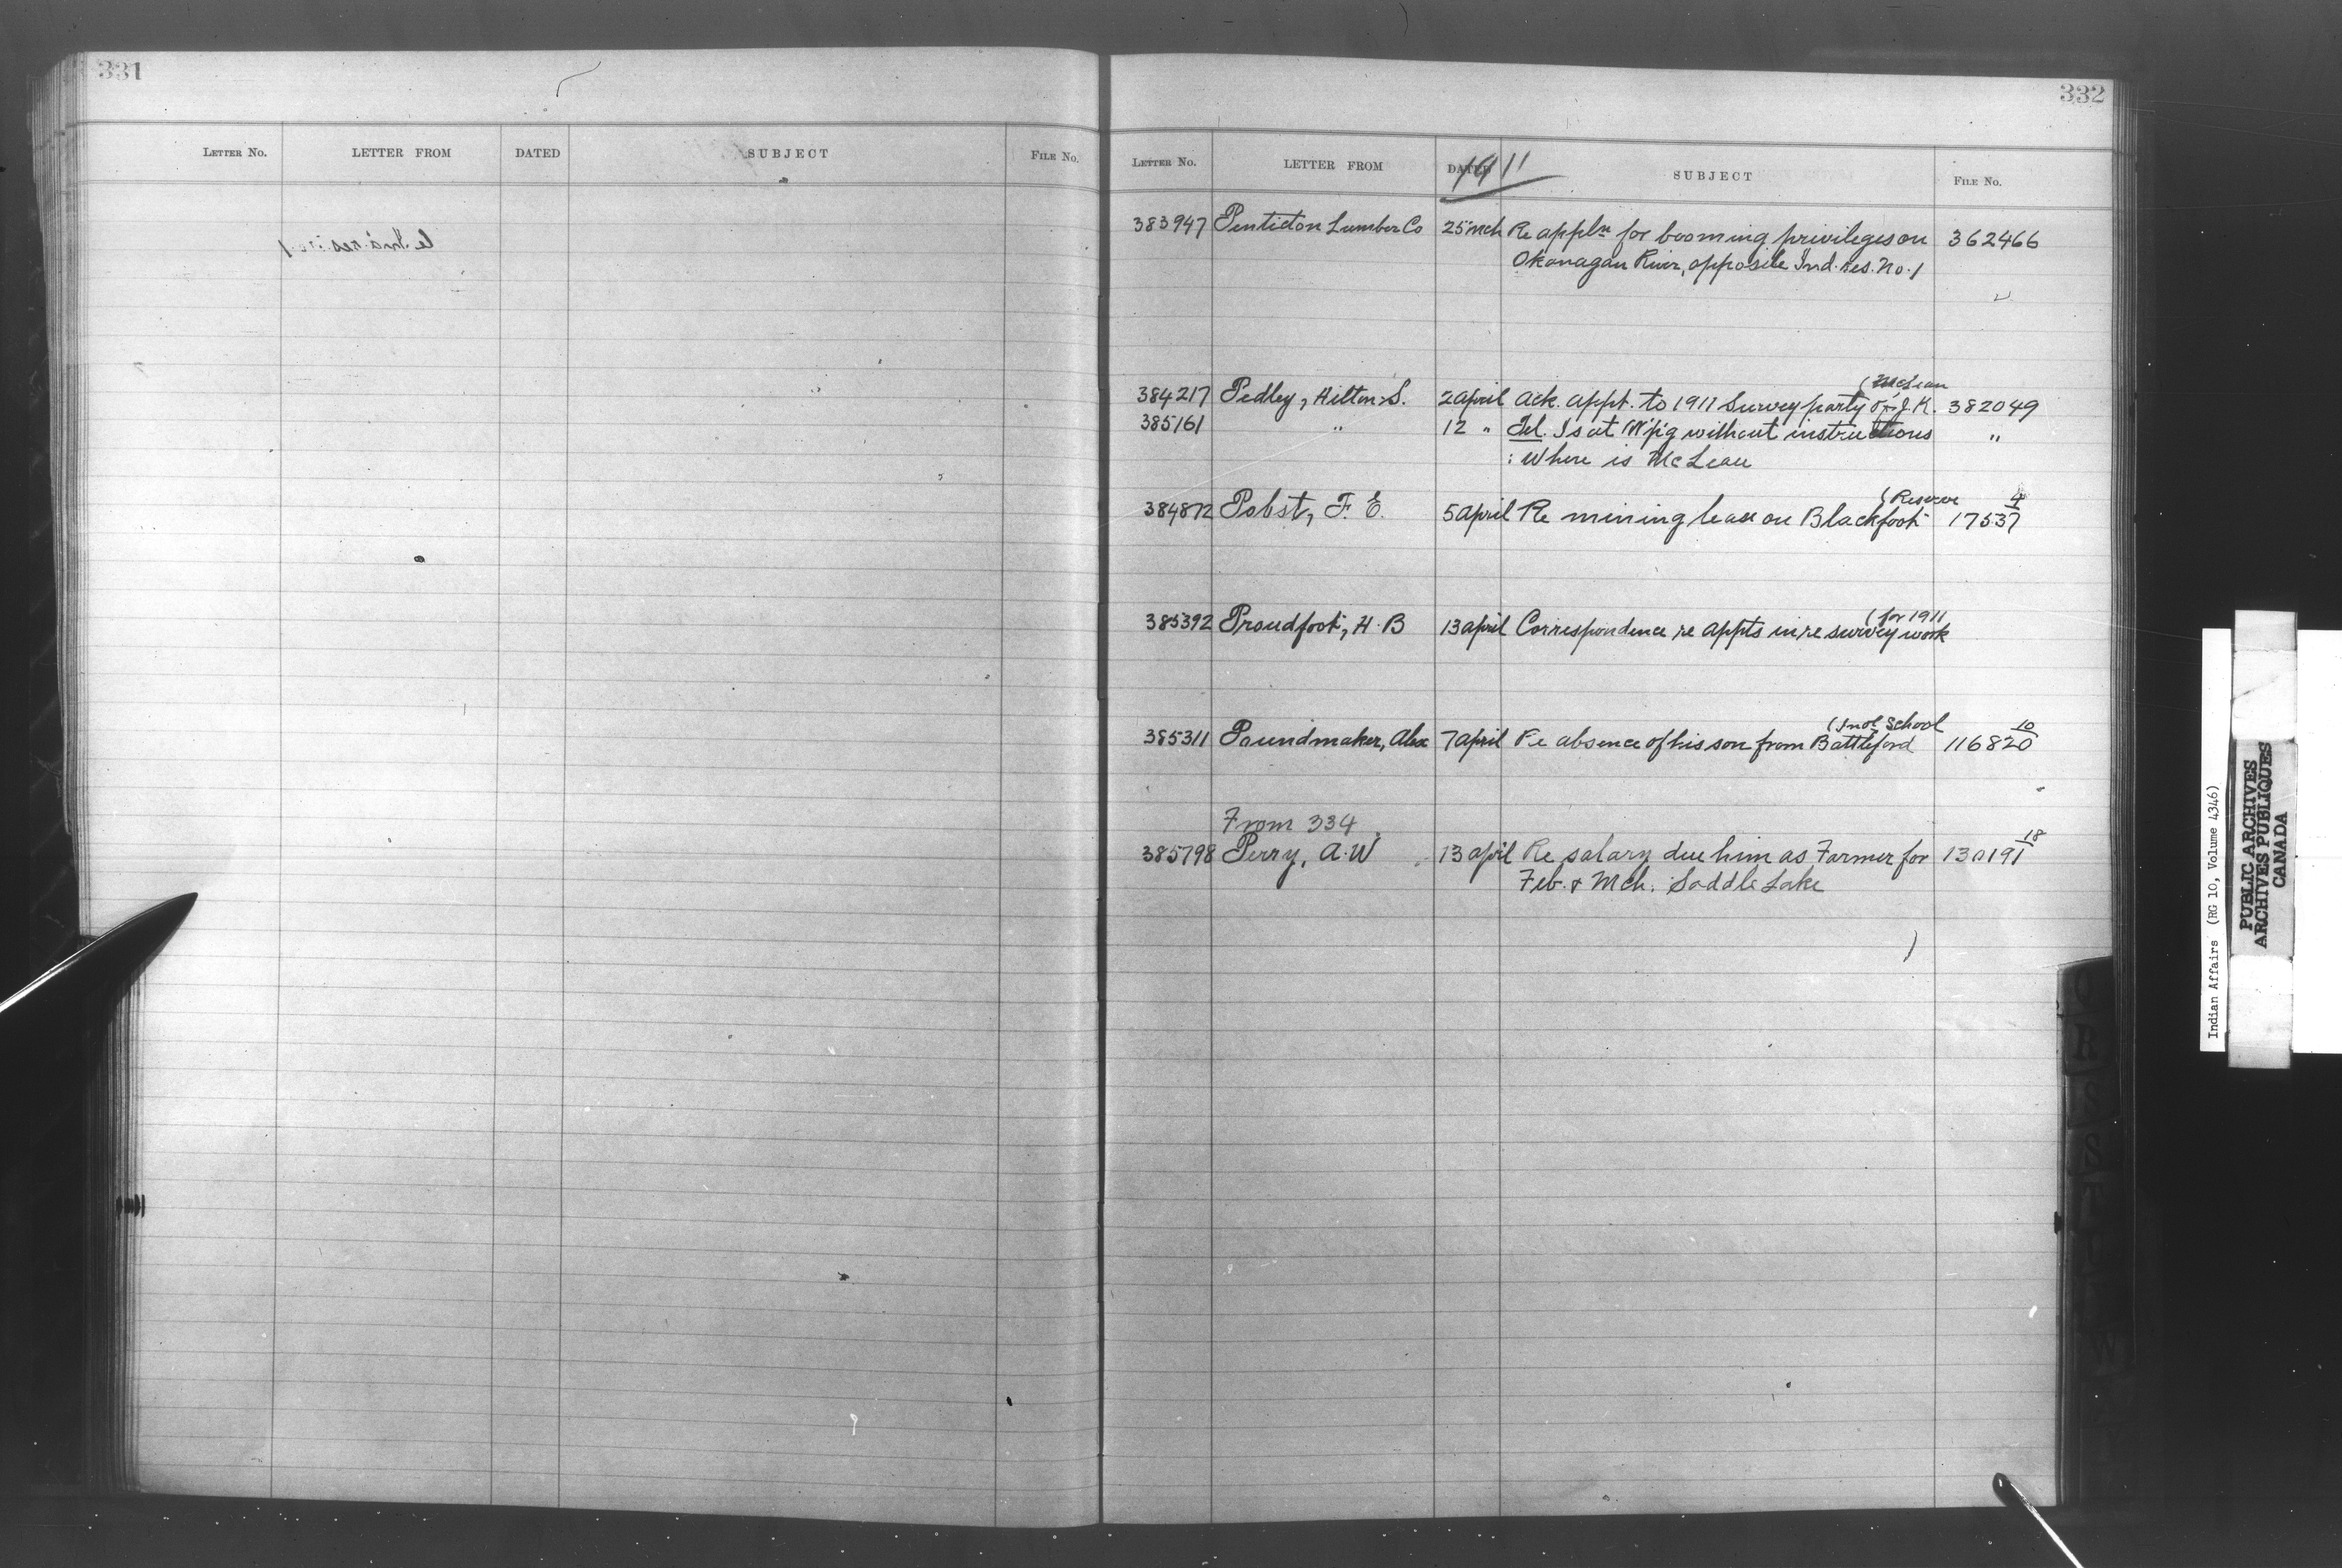 331
LETTER NO. LETTER FROM DATED SUBJECT FILE NO.
332
LETTER NO. LETTER FROM DATED 1911 SUBJECT FILE NO.
383947 Penticton Lumber Co 25 Mch Re appln for booming privileges on 362466
Okanagan River, opposite Ind. res. No. 1
384217 Pedley, Hilton S. 2 April Ack. appt. to 1911 Survey party of J. K. (McLean 382049
385161 " 12 " Tel. Is at W'p'g without instructions "
: Where is McLean
384872 Pobst, F. E. 5 April Re mining lease on Blackfoot (Reserve 17537 4
385392 Proudfoot, H. B 13 April Correspondence re appts in re survey work (for 1911
385311 Poundmaker, Alex 7 April Re absence of his son from Battleford (Ind. School 116820 10
From 334
385798 Perry, A. W 13 April Re salary due him as Farmer for 130191 18
Feb. & Mch. Saddle Lake
Indian Affairs (RG 10, Volume 4346)
PUBLIC ARCHIVES
ARCHIVES PUBLIQUES
CANADA